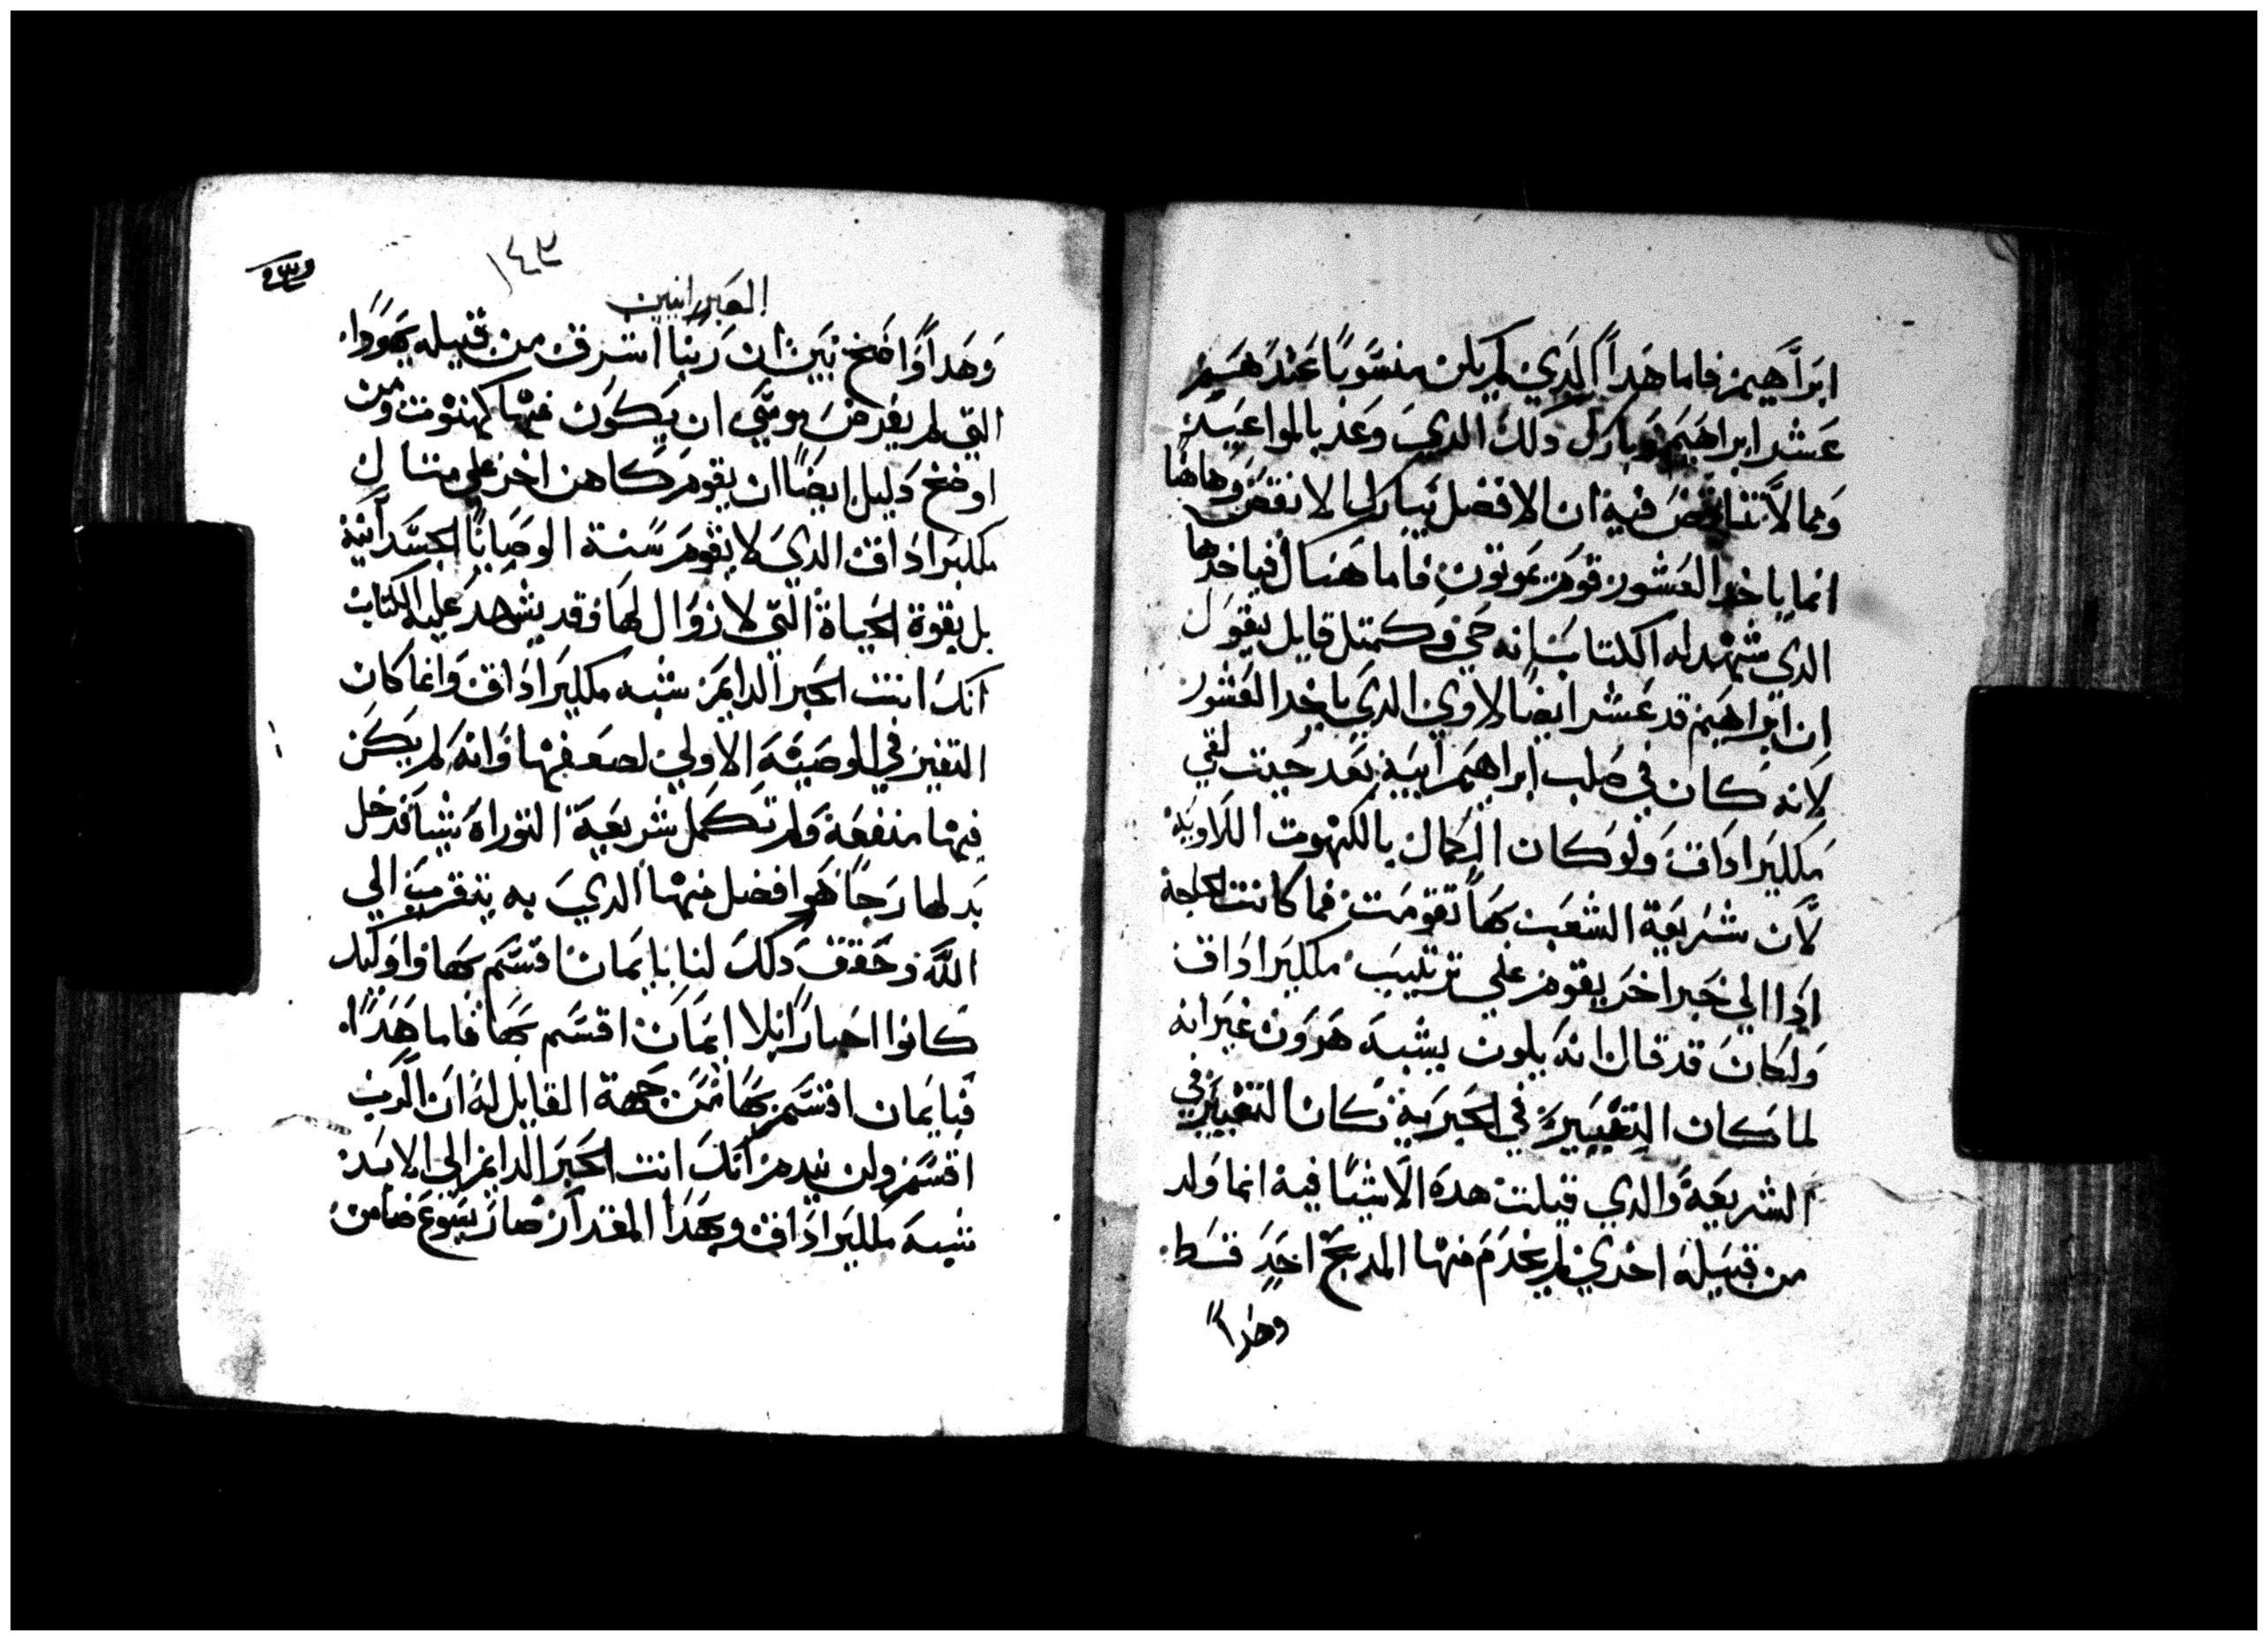 ابراهيم فاما هدا الدي لم يكن منسوبا عندهم
عشر ابراهيم وبارك دلك الدي وعد بالمواعيد
ومما لا تناقض فيه ان الافضل يبارك الانقص وهاهنا
انما ياخد العشور قوم يموتون فاما هناك فياخدها
الدي شهد له الكتاب انه حي وكمتل قايل يقول
ان ابراهيم قد عشر ايضا لاوي الدي ياخد العشور
لانه كان في صلب ابراهيم ابيه بعد حيت لقي
ملكيزاداق ولو كان الكمال بالكهنوت اللاويه
لان شريعة الشعب بها تقومت فما كانت الحاجة
ادا الي حبر اخر يقوم علي ترتيب ملكيزاداق
ولكان قد قال انه يكون يشبه هرون غير انه
لما كان التغيير في الحبرية كان التغيير في
الشريعة والدي قيلت هده الاشيا فيه انما ولد
من قبيلة اخري لم يخدم منها المدبح احد قط
وهدا
١٤٣
العبرانيين
وهدا واضح بين ان ربنا اشرق من قبيله يهودا
التي لم يفرض موسي ان يكون فيها كهنوت ومن
اوضح دليل ايضا ان يقوم كاهن اخر علي متال
ملكيزاداق الدي لا يقوم سنة الوصايا الجسدانية
بل بقوة الحياة التي لا زوال لها وقد يشهد عليه الكتاب
انك انت الحبر الدايم شبه ملكيزاداق وانما كان
التغيز في الوصيه الاولي لضعفها وانه لم يكن
فيها منفعة ولم تكمل شريعة التوراه شيا فدخل
بدلها رجا هو افضل منها الدي به نتقرب الي
الله وحقق دلك لنا بايمان اقسم بها واوليك
كانوا احبارا بلا ايمان اقسم بها فاما هدا
فبايمان اقسم بها من جهة القايل له ان الرب
اقسم ولن يندم انك انت الحبر الدايم الي الابد
شبه ملكيزاداق وبهدا المقدار صار يسوع ضامن